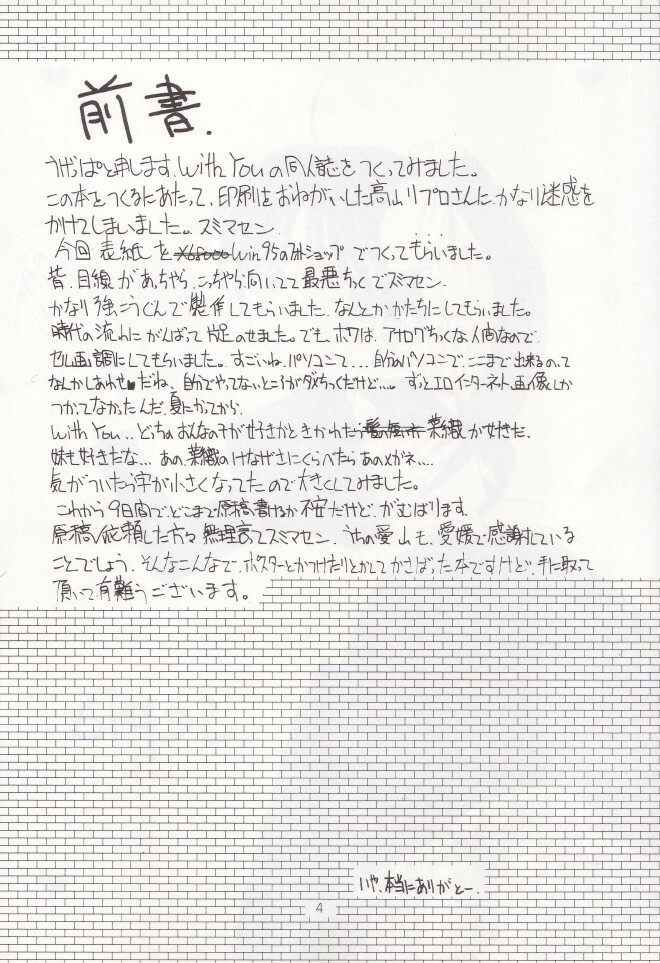 前書.
うげっぱと申します。With Youの同人誌をつくってみました。
この本をつくるにあたって、印刷をおねがいした高山リプロさんに、かなり迷惑を
かけてしまいました。スミマセン. ...
今回 表紙を X68000 Win95のフォトショップ でつくってもらいました。
昔.目線があっちゃら、こっちゃら向いてて最悪ちっくでズミマセン.
かなり強こうぐんで製作してもらいました.なんとかかたちにしてもらいました。
時代の流れにがんばって片足のせました。でも、ボクは、アナログちっくな人間なので.
セル画調にしてもらいました。すごいね、パソコンて...自分のパソコンで、ここまで出来るのって
なんかしあわせ♥だね、自分でやってないところがダメちっくだけど...。ずっとエロインターネット画像しか
つかってなかったんだ.夏にかってから.
With You.. どっちのおんなの子が好きかときかれたら 菜織が好きだ.
妹も好きだな... あの、菜織のけなげさにくらべたらあのメガネ....
気がついたら字が小さくなってたので大きくしてみました。
これから9日間で、どこまで原稿書けるか不安だけど、がむばります.
原稿依頼した方々 無理言ってスミマセン. うちの愛山も、愛媛で感謝している
ことでしょう. そんなこんなで、ポスターとかつけたりとかしてかさばった本ですけど、手に取って
頂いて有難うございます。
いや、本当にありがとー.
4